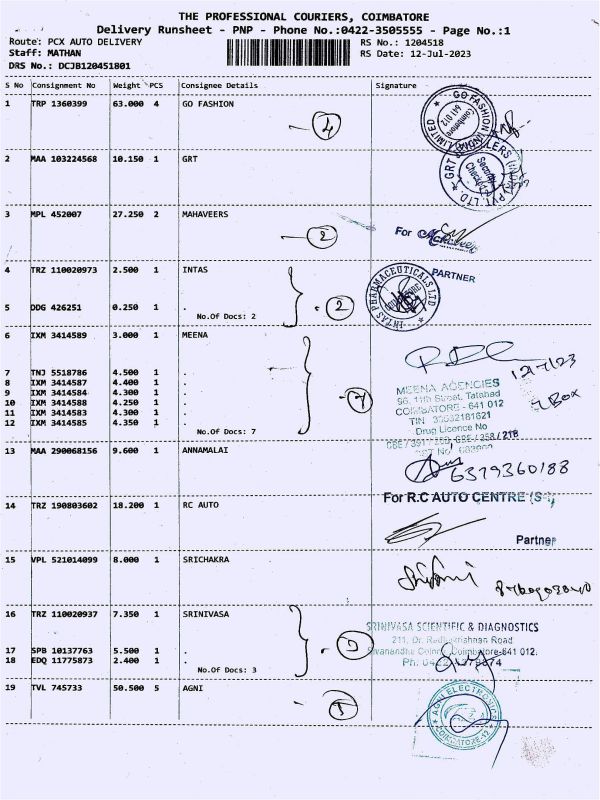 THE PROFESSIONAL COURIERS, COIMBATORE
Delivery Runsheet - PNP - Phone No.:0422-3505555 - Page No.:1
Route: PCX AUTO DELIVERY
RS No.: 1204518
Staff: MATHAN
RS Date: 12-Jul-2023
DRS No.: DCJB120451801
S No Consignment No Weight PCS Consignee Details Signature
1 TRP 1360399 63.000 4 GO FASHION
4
GO FASHION (INDIA) LIMITED
Coimbatore 641 012
2 MAA 103224568 10.150 1 GRT
3 MPL 452007 27.250 2 MAHAVEERS
2
For
PARTNER
4 TRZ 110020973 2.500 1 INTAS
INTAS PHARMACEUTICALS LTD
5 DDG 426251 0.250 1 .
No.Of Docs: 2
2
6 IXM 3414589 3.000 1 MEENA
12/7/23
7 TNJ 5518786 4.500 1 .
8 IXM 3414587 4.400 1 .
9 IXM 3414584 4.300 1 .
10 IXM 3414588 4.250 1 .
11 IXM 3414583 4.300 1 .
12 IXM 3414585 4.350 1 .
No.Of Docs: 7
7
MEENA AGENCIES
96, 11th Street, Tatabad
COIMBATORE - 641 012
Drug Licence No
7 Box
13 MAA 290068156 9.600 1 ANNAMALAI
6379360188
14 TRZ 190803602 18.200 1 RC AUTO
For R.C AUTO CENTRE
Partner
15 VPL 521014099 8.000 1 SRICHAKRA
16 TRZ 110020937 7.350 1 SRINIVASA
17 SPB 10137763 5.500 1 .
18 EDQ 11775873 2.400 1 .
No.Of Docs: 3
SRINIVASA SCIENTIFIC & DIAGNOSTICS
211, Dr. Radhakrishnan Road
Coimbatore-641 012.
19 TVL 745733 50.500 5 AGNI
5
AGNI ELECTRONICS
COIMBATORE-12